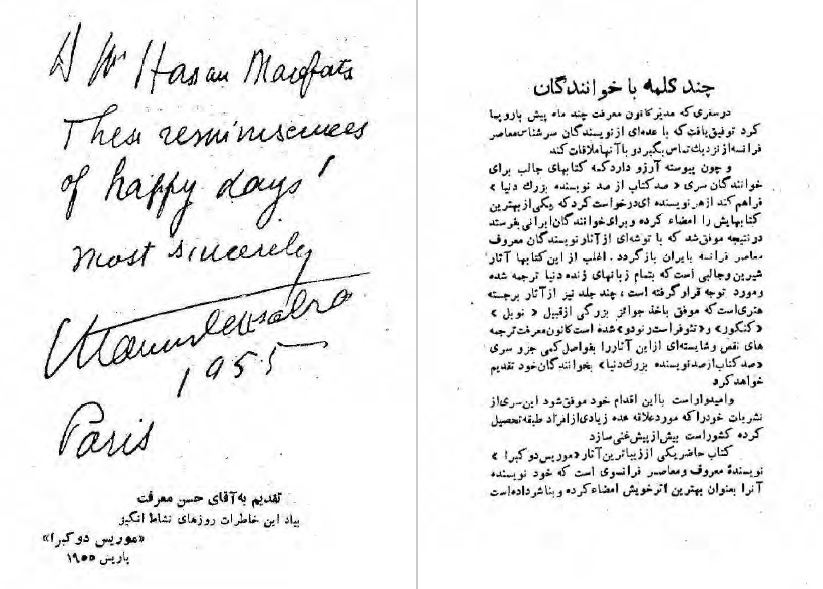 A Mr Hasan Marefat
These reminiscences
of happy days!
most sincerely
Maurice Dekobra
1955
Paris
تقدیم به آقای حسن معرفت
بیاد این خاطرات روزهای نشاط انگیز
«موریس دو کبرا»
پاریس ۱۹۵۵
چند کلمه با خوانندگان
در سفری که مدیر کانون معرفت چند ماه پیش باروپا
کرد توفیق یافت که با عده‌ای از نویسندگان سرشناس معاصر
فرانسه از نزدیک تماس بگیرد و با آنها ملاقات کند
و چون پیوسته آرزو دارد که کتابهای جالب برای
خوانندگان سری «صد کتاب از صد نویسنده بزرگ دنیا»
فراهم کند از هر نویسنده ای درخواست کرد که یکی از بهترین
کتابهایش را امضاء کرده و برای خوانندگان ایرانی بفرستد
در نتیجه موفق شد که با توشه‌ای از آثار نویسندگان معروف
معاصر فرانسه بایران باز گردد. اغلب از این کتابها آثار
شیرین و جالبی است که بتمام زبانهای زنده دنیا ترجمه شده
و مورد توجه قرار گرفته است، چند جلد نیز از آثار برجسته
هنری است که موفق باخذ جوائز بزرگی از قبیل «نوبل»
«کنکور» و «تئوفراست رنودو» شده است کانون معرفت ترجمه
های نقص و شایسته‌ای از این آثار را بفواصل کمی جزو سری
«صد کتاب از صد نویسنده بزرگ دنیا» بخوانندگان خود تقدیم
خواهد کرد
و امیدوار است با این اقدام خود موفق شود این سری از
نشریات خود را که مورد علاقه عده زیادی از افراد طبقه تحصیل
کرده کشور است بیش از پیش غنی سازد
کتاب حاضر یکی از زیباترین آثار «موریس دو کبرا»
نویسندهٔ معروف و معاصر فرانسوی است که خود نویسنده
آنرا بعنوان بهترین اثر خویش امضاء کرده و بناشر داده است